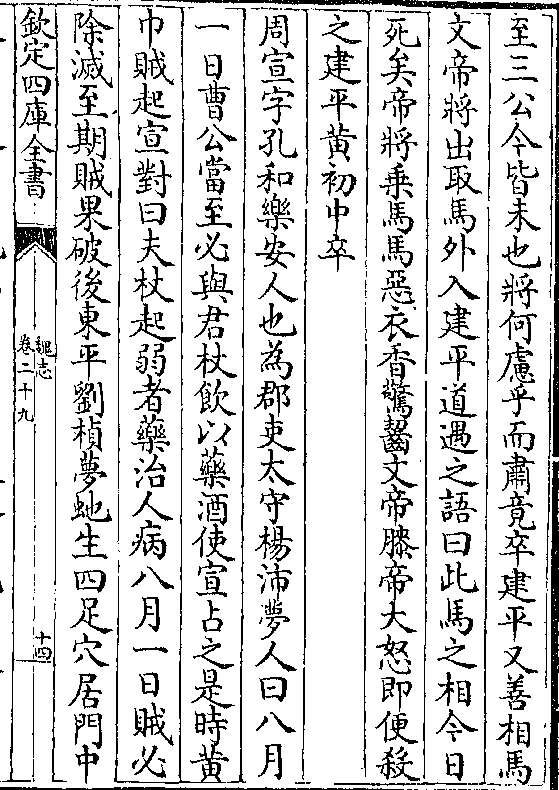 至三公今皆未也將何慮乎而肅竟卒建平又善相馬
文帝將出取馬外入建平道遇之語曰此馬之相今日
死矣帝將乗馬馬惡衣香驚齧文帝膝帝大怒即便殺
之建平黄初中卒
周宣字孔和樂安人也為郡吏太守楊沛夢人曰八月
一日曹公當至必與君杖飲以藥酒使宣占之是時黄
巾賊起宣對曰夫杖起弱者藥治人病八月一日賊必
除滅至期賊果破後東平劉楨夢虵生四足穴居門中
欽定四庫全書
魏志
卷二十九
十四